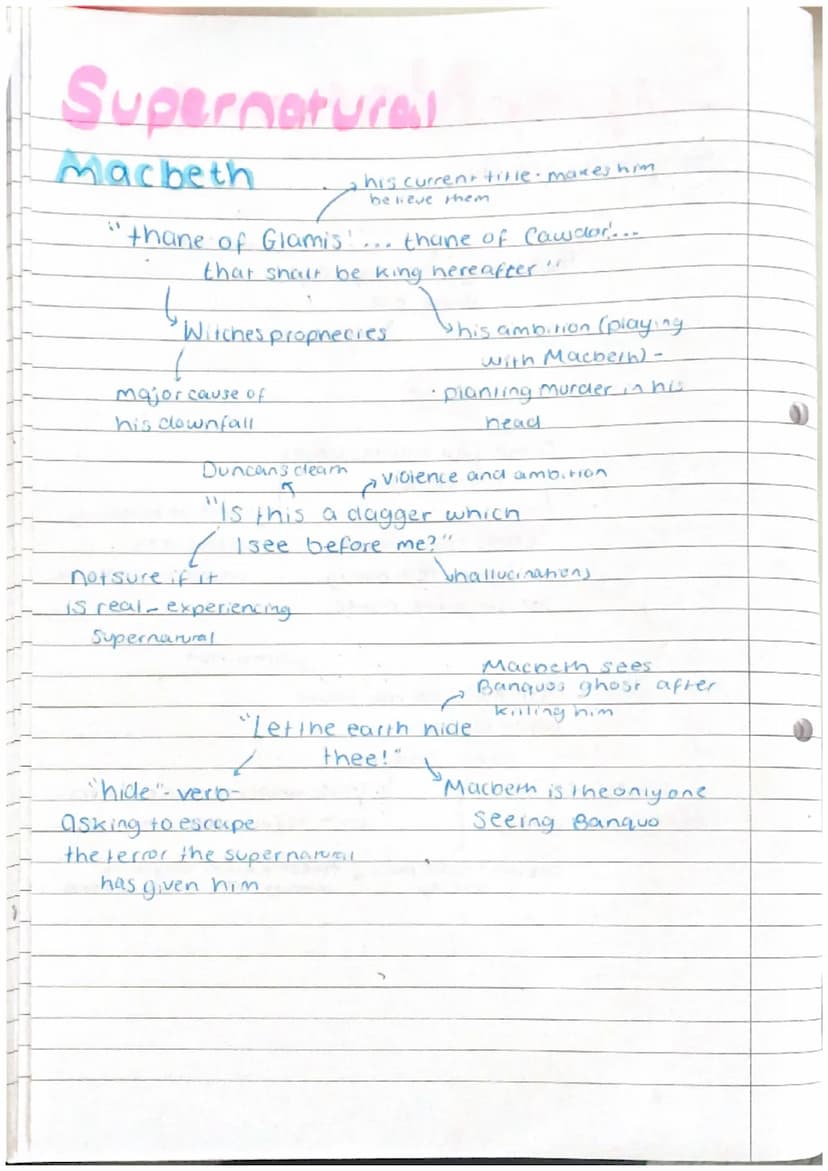 Supernatural
Macbeth
his current title - makes him
believe them
"thane of Glamis!... thane of Cawdor!...
that shalt be king hereafter"
Witches prophecies
his ambition (playing
with Macbeth) -
major cause of
planting murder in his
his downfall
head
Duncans death
violence and ambition
"Is this a dagger which
I see before me?"
not sure if it
hallucinations
is real - experiencing
supernatural
Macbeth sees
Banquos ghost after
killing him
"Let the earth hide
thee!"
"hide" - verb -
Macbeth is the only one
asking to escape
seeing Banquo
the terror the supernatural
has given him